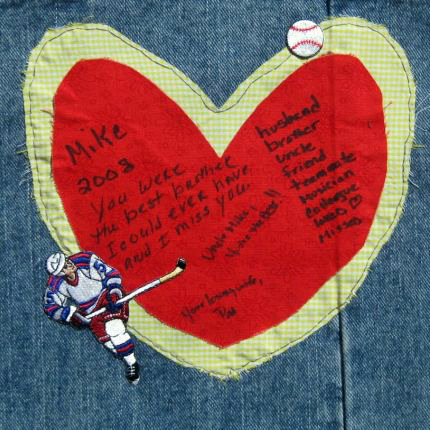 Mike
2008
You were
the best brother
I could ever have
and I miss you.
husband
brother
uncle
friend
teammate
musician
colleague
Misses
Your loving wife,